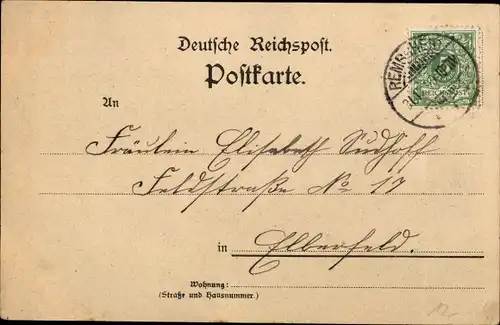 Deutsche Reichspost.
Postkarte.
REICHSPOST
An
Fräulein Elisabeth Sudhoff
Feldstraße No 17
in Elberfeld.
Wohnung:
(Straße und Hausnummer.)